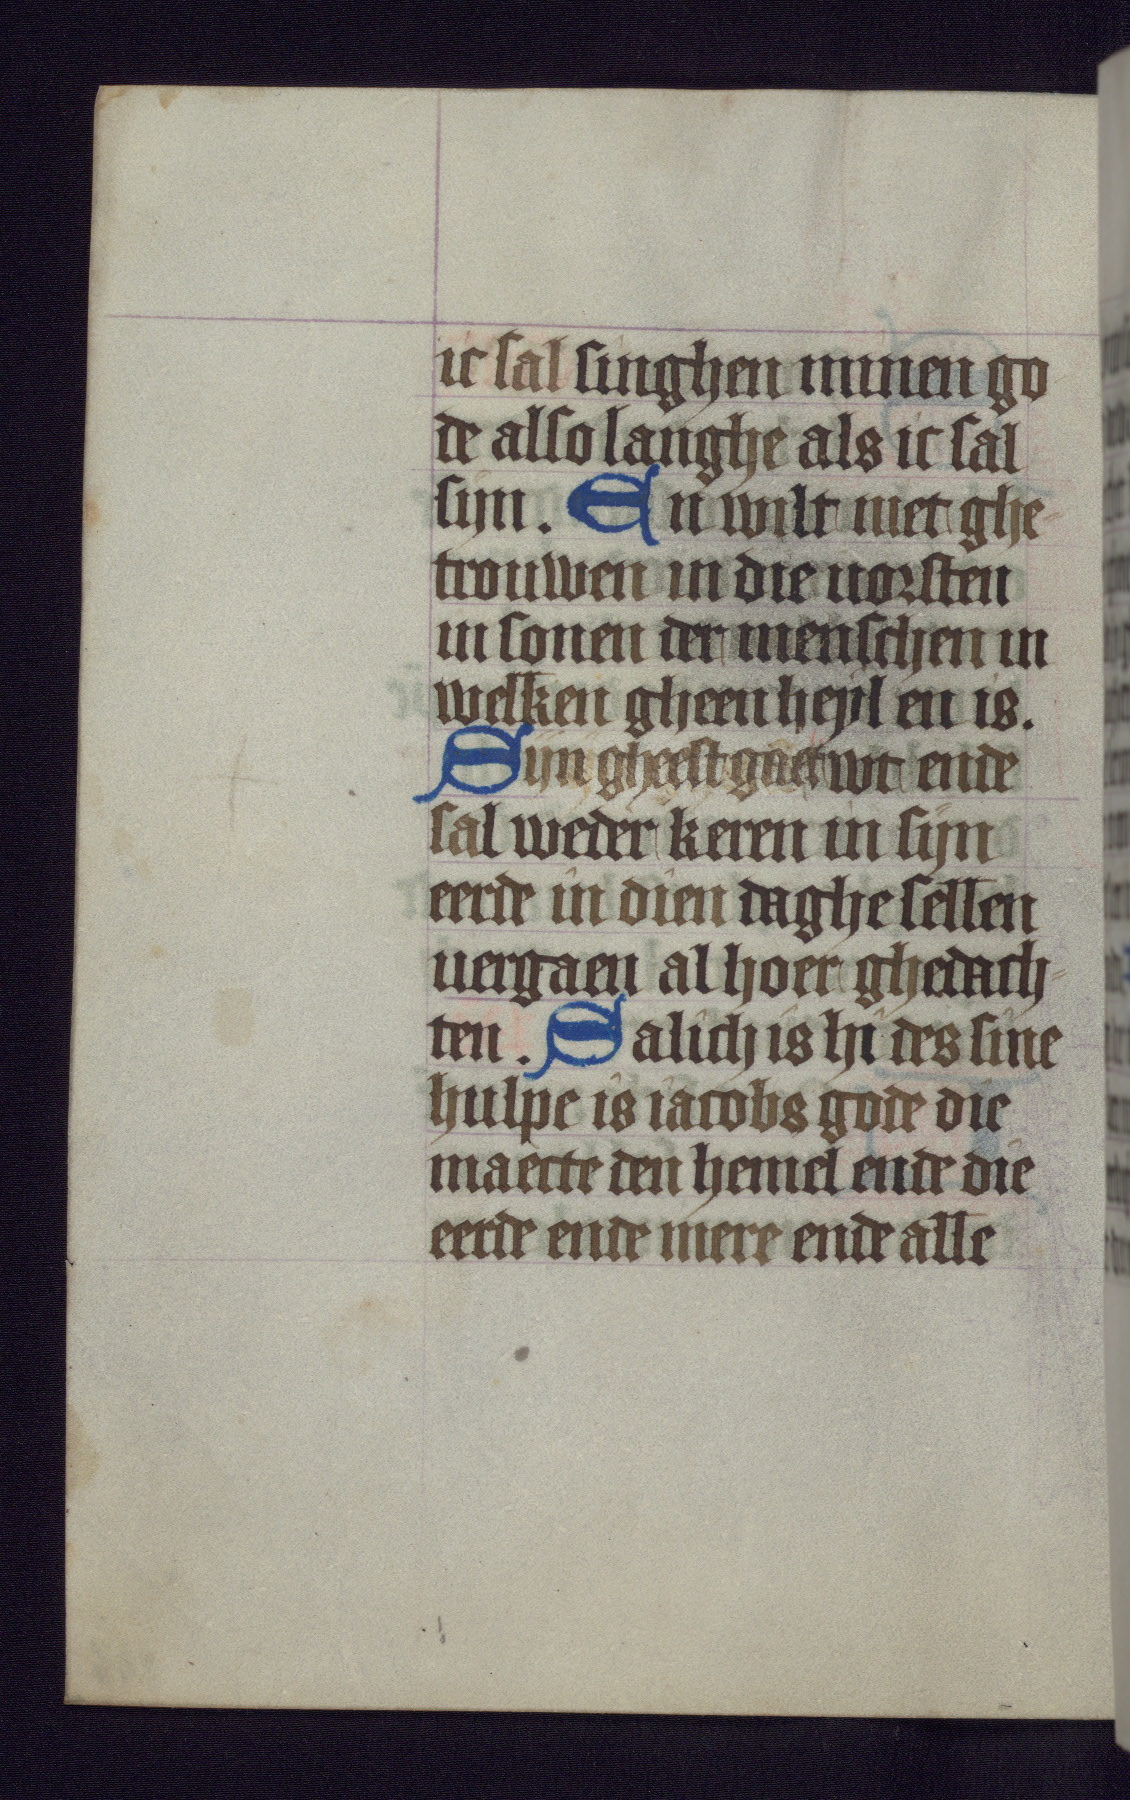 ic sal singhen minen go
de also langhe als ic sal
sijn. En wilt niet ghe-
trouwen in die uorsten
in sonen der menschen in
welken gheen heyl en is.
Sijn gheest gaet wt ende
sal weder keren in sijn
eerde in dien daghe sellen
uergaen al hoer ghedach-
ten. Salich is hi des sine
hulpe is iacobs gode die
maecte den hemel ende die
eerde ende mere ende alle